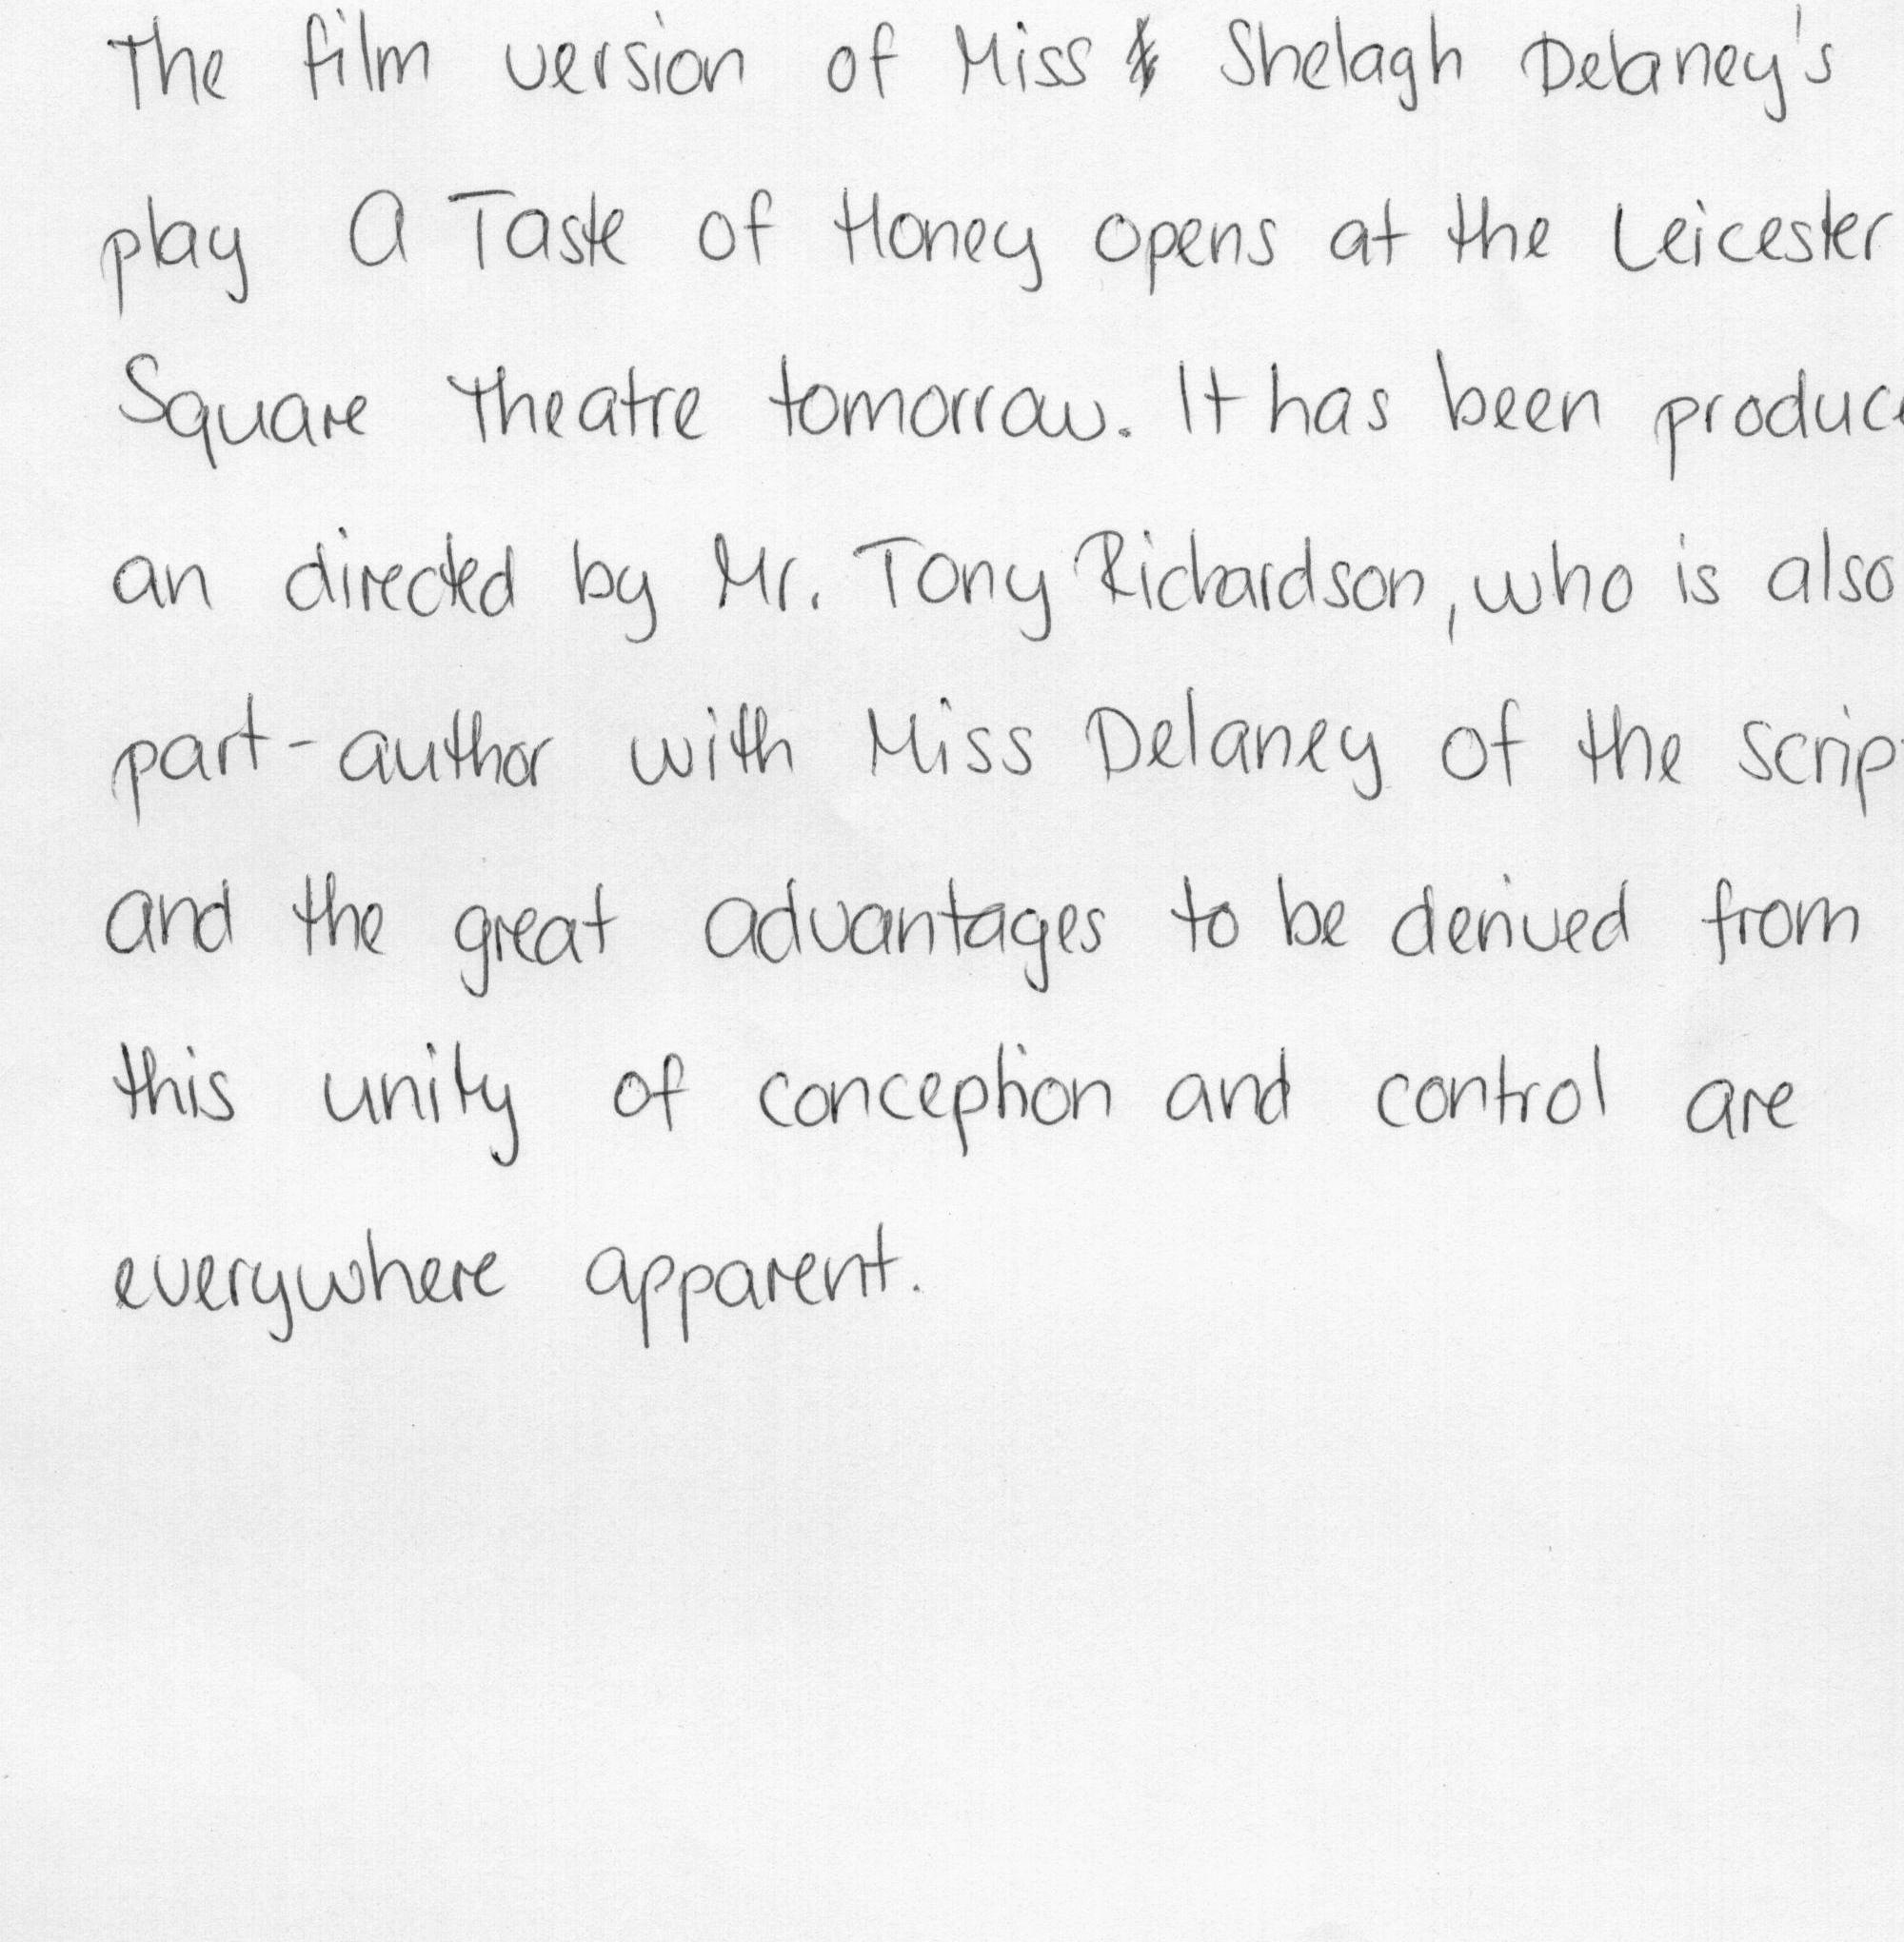 The film version of Miss Shelagh Delaney's
play A Taste of Honey opens at the Leicester
Square Theatre tomorrow. It has been produce
an directed by Mr. Tony Richardson, who is also
part-author with Miss Delaney of the Script
and the great advantages to be derived from
this unity of conception and control are
everywhere apparent.